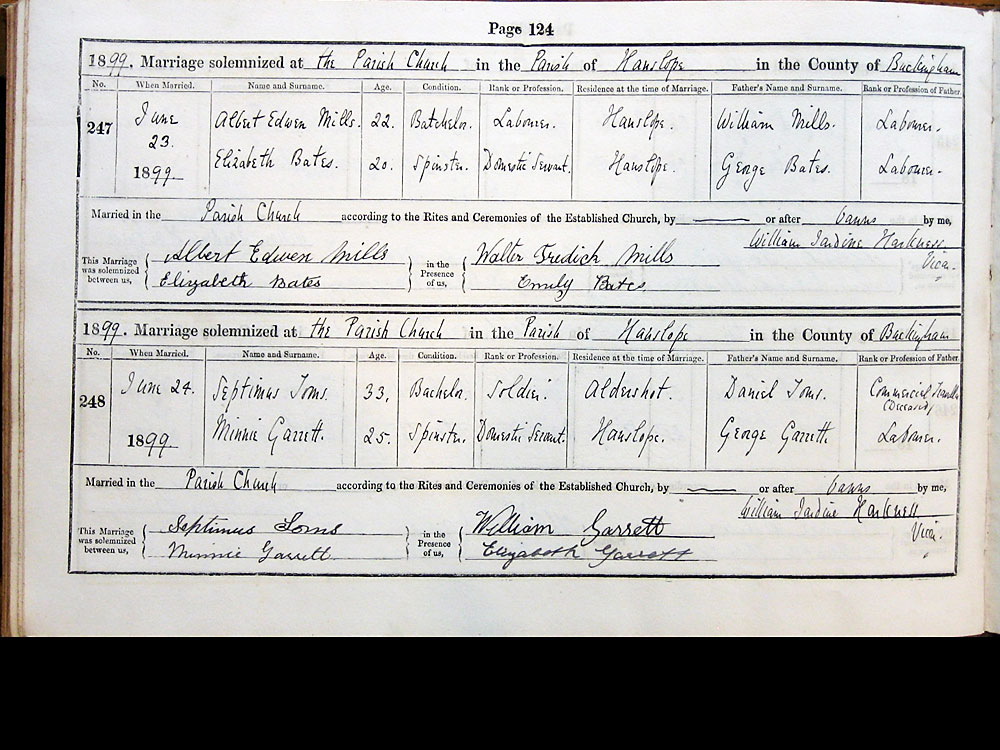 Page 124
1899. Marriage solemnized at the Parish Church in the Parish of Hanslope in the County of Buckingham
No. When Married. Name and Surname. Age. Condition. Rank or Profession. Residence at the time of Marriage. Father's Name and Surname. Rank or Profession of Father.
247 June 23. 1899 Albert Edwen Mills. 22. Batchelor. Labourer. Hanslope. William Mills. Labourer.
Elizabeth Bates. 20. Spinster. Domestic Servant. Hanslope. George Bates. Labourer.
Married in the Parish Church according to the Rites and Ceremonies of the Established Church, by or after banns by me,
William Jardine Harkness
Vicar.
This Marriage was solemnized between us, Albert Edwen Mills in the Presence of us, Walter Fredick Mills
Elizabeth Bates Emily Bates.
1899. Marriage solemnized at the Parish Church in the Parish of Hanslope in the County of Buckingham
No. When Married. Name and Surname. Age. Condition. Rank or Profession. Residence at the time of Marriage. Father's Name and Surname. Rank or Profession of Father.
248 June 24. 1899 Septimus Toms. 33. Bachelor. Soldier. Aldershot. Daniel Toms. Commercial Traveller (Deceased)
Minnie Garrett. 25. Spinster. Domestic Servant. Hanslope. George Garrett Labourer.
Married in the Parish Church according to the Rites and Ceremonies of the Established Church, by or after banns by me,
William Jardine Harkness
Vicar.
This Marriage was solemnized between us, Septimus Toms in the Presence of us, William Garrett
Minnie Garrett. Elizabeth Garrett